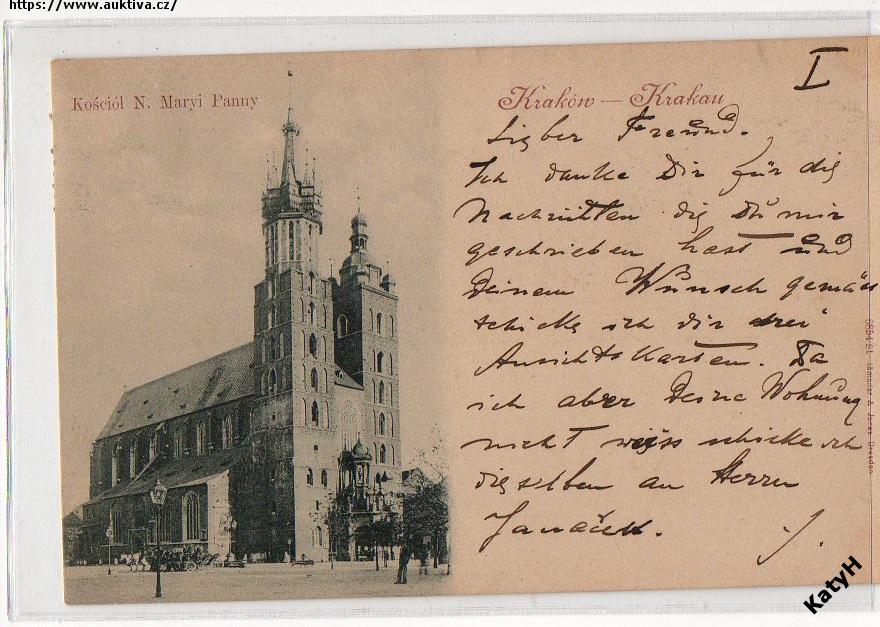 https://www.auktiva.cz/
Kościół N. Maryi Panny
Kraków — Krakau
I
Lieber Freund.
Ich danke Dir für die
Nachrichten die Du mir
geschrieben hast und
Deinem Wunsch gemäss
schicke ich dir drei
Ansichtskarten. Da
ich aber Deine Wohnung
nicht weiss schicke ich
dieselben an Herrn
Janáček. J.
Dresden
KatyH